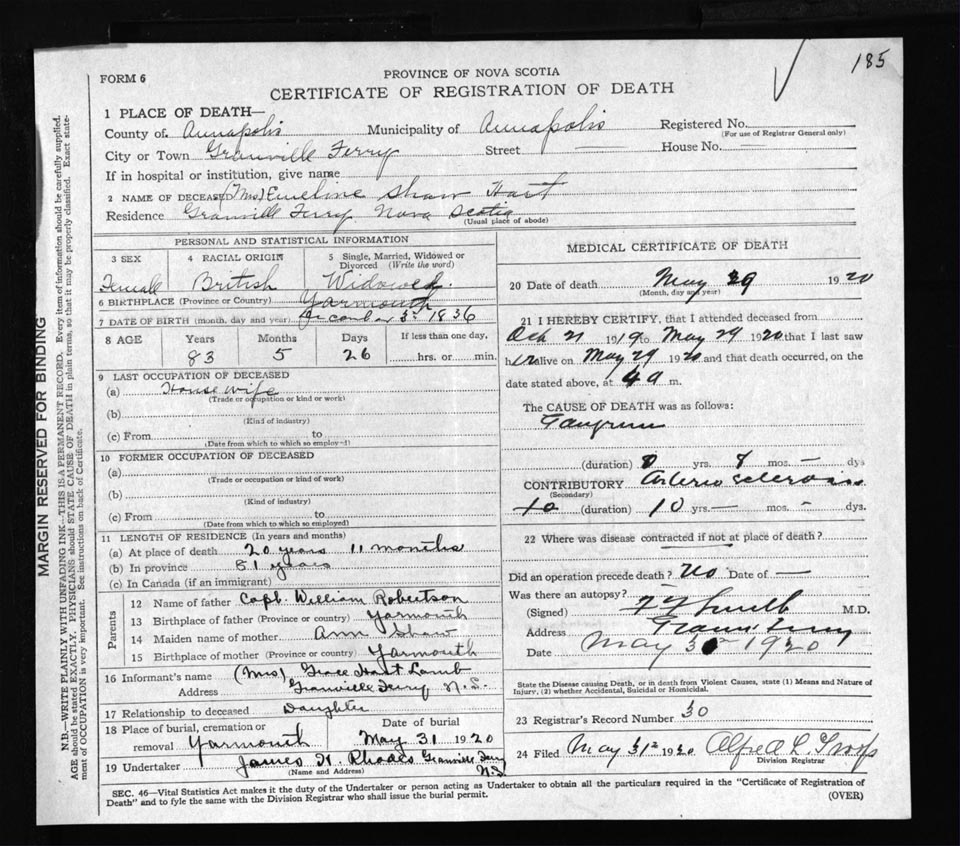 185
FORM 6
PROVINCE OF NOVA SCOTIA
CERTIFICATE OF REGISTRATION OF DEATH
1 PLACE OF DEATH—
County of Annapolis Municipality of Annapolis Registered No.
(For use of Registrar General only)
City or Town Granville Ferry Street — House No. —
If in hospital or institution, give name
2 NAME OF DECEASED (Mrs) Emeline Shaw Hart
Residence Granville Ferry Nova Scotia
(Usual place of abode)
PERSONAL AND STATISTICAL INFORMATION
3 SEX 4 RACIAL ORIGIN 5 Single, Married, Widowed or Divorced (Write the word)
Female British Widowed.
6 BIRTHPLACE (Province or Country) Yarmouth
7 DATE OF BIRTH (month, day and year) December 3rd 1836
8 AGE Years Months Days If less than one day,
83 5 26 hrs. or min.
9 LAST OCCUPATION OF DECEASED
(a) House wife
(Trade or occupation or kind or work)
(b)
(Kind of industry)
(c) From to
(Date from which to which so employed)
10 FORMER OCCUPATION OF DECEASED
(a)
(Trade or occupation or kind of work)
(b)
(Kind of industry)
(c) From to
(Date from which to which so employed)
11 LENGTH OF RESIDENCE (In years and months)
(a) At place of death 20 years 11 months
(b) In province 81 years
(c) In Canada (if an immigrant)
Parents
12 Name of father Capt. William Robertson
13 Birthplace of father (Province or country) Yarmouth
14 Maiden name of mother Ann Shaw
15 Birthplace of mother (Province or country) Yarmouth
16 Informant's name (Mrs) Grace Hart Lamb
Address Granville Ferry N.S.
17 Relationship to deceased Daughter
18 Place of burial, cremation or removal Date of burial
Yarmouth May 31 1920
19 Undertaker James H. Rhodes Granville Ferry N.S.
(Name and Address)
MEDICAL CERTIFICATE OF DEATH
20 Date of death May 29 1920
(Month, day and year)
21 I HEREBY CERTIFY, that I attended deceased from
Oct 21 1919 to May 29 1920 that I last saw
her alive on May 29 1920 and that death occurred, on the
date stated above, at 4 a m.
The CAUSE OF DEATH was as follows:
Gangrene
(duration) yrs. 7 mos. — dys
CONTRIBUTORY Arterio sclerosis
(Secondary)
(duration) 10 yrs. — mos. — dys.
22 Where was disease contracted if not at place of death?
Did an operation precede death? No Date of —
Was there an autopsy?
(Signed) M.D.
Address Granv. Ferry
Date May 1920
State the Disease causing Death, or in death from Violent Causes, state (1) Means and Nature of
Injury, (2) whether Accidental, Suicidal or Homicidal.
23 Registrar's Record Number 30
24 Filed May 31st 1920 Alfred L.
Division Registrar
SEC. 46—Vital Statistics Act makes it the duty of the Undertaker or person acting as Undertaker to obtain all the particulars required in the "Certificate of Registration of
Death" and to fyle the same with the Division Registrar who shall issue the burial permit.
(OVER)
MARGIN RESERVED FOR BINDING
N.B.—WRITE PLAINLY WITH UNFADING INK—THIS IS A PERMANENT RECORD. Every item of information should be carefully supplied.
AGE should be stated EXACTLY. PHYSICIANS should STATE CAUSE OF DEATH in plain terms, so that it may be properly classified. Exact state-
ment of OCCUPATION is very important. See instructions on back of Certificate.